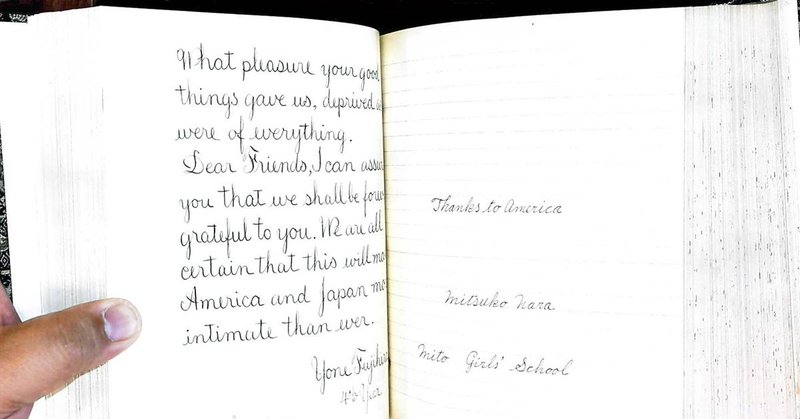 What pleasure your good
things gave us, deprived
were of everything.
Dear Friends, I can
you that we shall be
grateful to you. We are all
certain that this will
America and Japan
intimate than ever.
Yone
4th Year
Thanks to America
Mitsuko Nara
Mito Girls' School